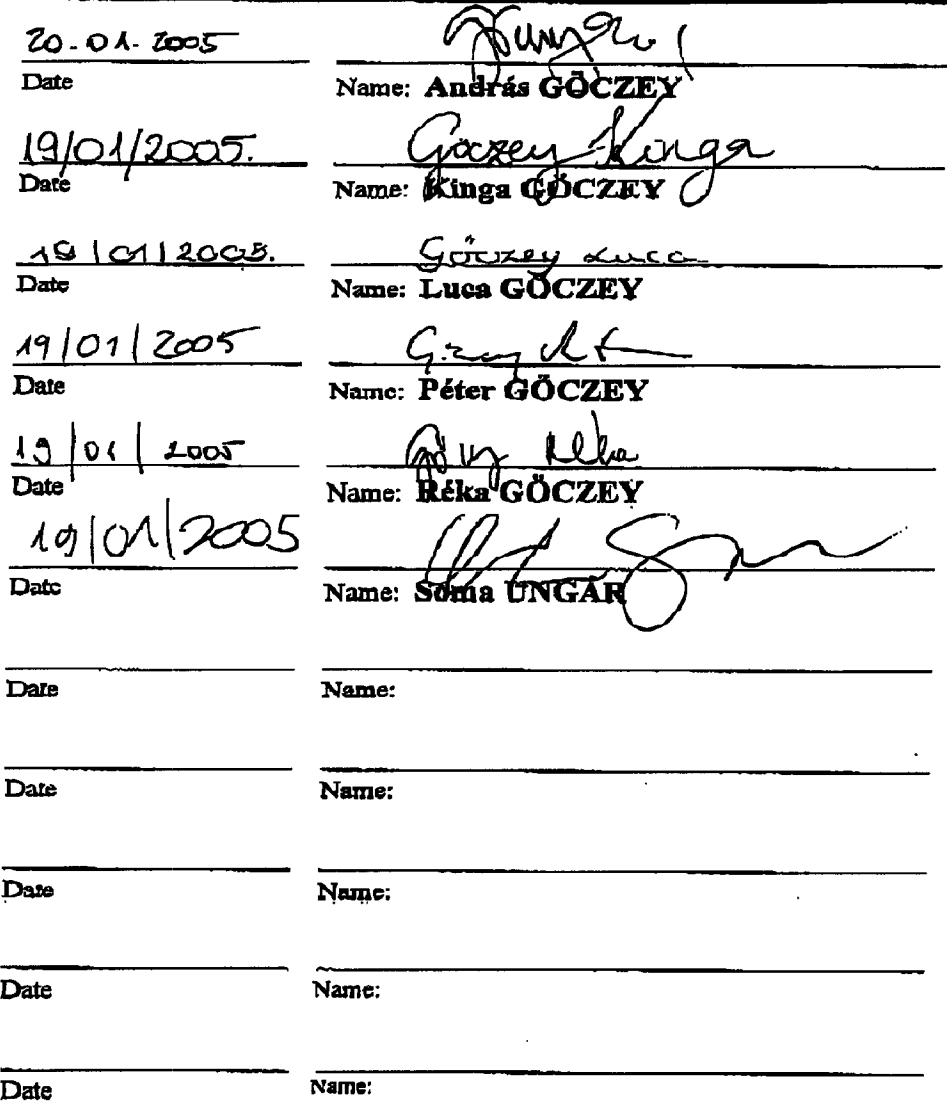 20-01-2005
Date Name: András GÖCZEY
19/01/2005. Göczey Kinga
Date Name: Kinga GÖCZEY
19/01/2005. Göczey Luca
Date Name: Luca GÖCZEY
19/01/2005
Date Name: Péter GÖCZEY
19/01/2005 Réka
Date Name: Réka GÖCZEY
19/01/2005
Date Name: Soma UNGÁR
Date Name:
Date Name:
Date Name:
Date Name:
Date Name: